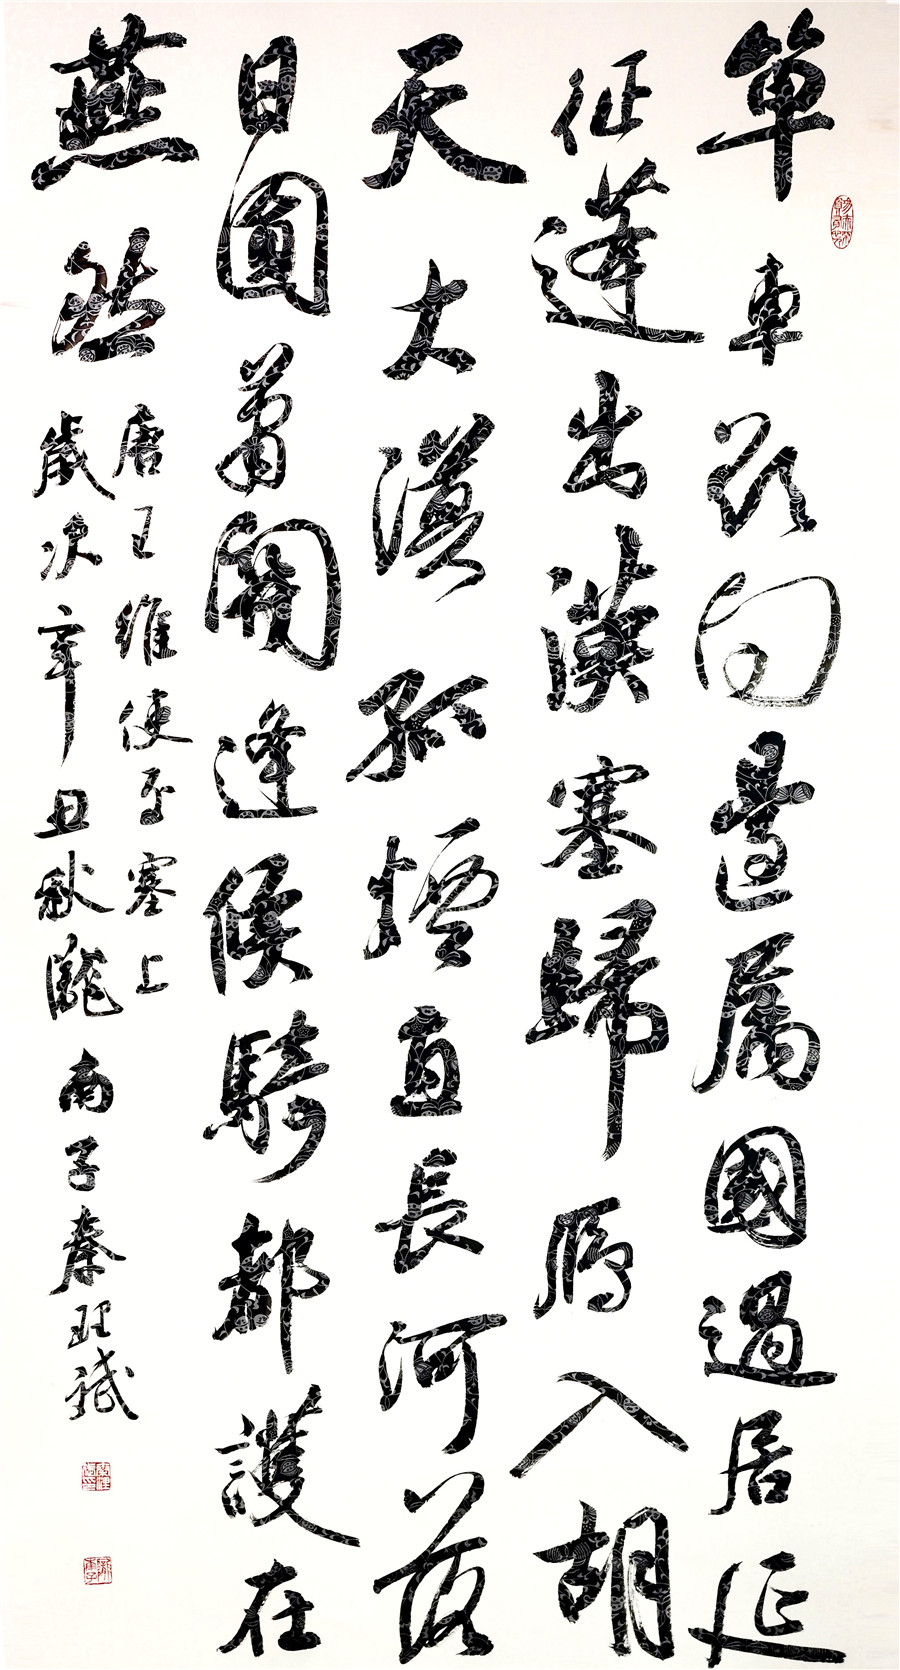 單車欲問邊屬國過居延
征蓬出漢塞歸雁入胡
天大漠孤煙直長河落
日圓蕭關逢候騎都護在
燕然
唐王維使至塞上
歲次辛丑秋隴
南子秦